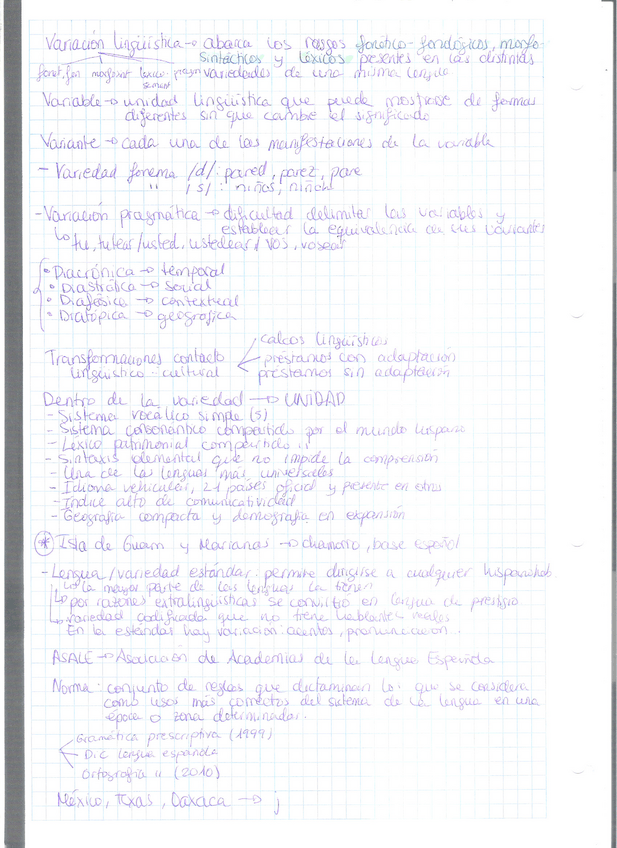 Variación lingüística → abarca los rasgos fonético-fonológicos, morfo-
sintácticos y léxicos presentes en las distintas
fonet, fon morfosint léxico. pragm variedades de una misma lengua
semant
Variable → unidad lingüística que puede mostrarse de formas
diferentes sin que cambie el significado
Variante → cada una de las manifestaciones de la variable
- Variedad fonema /d/: pared, parez, pare
" /s/: niños, niñoh
- Variación pragmática → dificultad delimitar las variables y
establecer la equivalencia de sus variantes
↳ tu, tutear/usted, ustedear/vos, vosear
• Diacrónica → temporal
• Diastrática → social
• Diafásica → contextual
• Diatópica → geográfica
calcos lingüísticos
Transformaciones contacto préstamos con adaptación
lingüístico-cultural préstamos sin adaptación
Dentro de la variedad → UNIDAD
- Sistema vocálico simple (5)
- Sistema consonántico compartido por el mundo hispano
- Léxico patrimonial compartido "
- Sintaxis elemental que no impide la comprensión
- Una de las lenguas más universales
- Idioma vehicular, 21 países oficial y presente en otros
- Índice alto de comunicatividad
- Geografía compacta y demografía en expansión
* Isla de Guam y Marianas → chamorro, base español
- Lengua/variedad estándar: permite dirigirse a cualquier hispanohab.
↳ la mayor parte de las lenguas la tienen
↳ por razones extralingüísticas se convirtió en lengua de prestigio
↳ variedad codificada que no tiene hablantes reales
En la estándar hay variación: acentos, pronunciación..
ASALE → Asociación de Academias de la Lengua Española
Norma: conjunto de reglas que dictaminan lo que se considera
como usos más correctos del sistema de la lengua en una
época o zona determinadas.
Gramática prescriptiva (1999)
- Dic lengua española
Ortografía " (2010)
México, Texas, Oaxaca → j